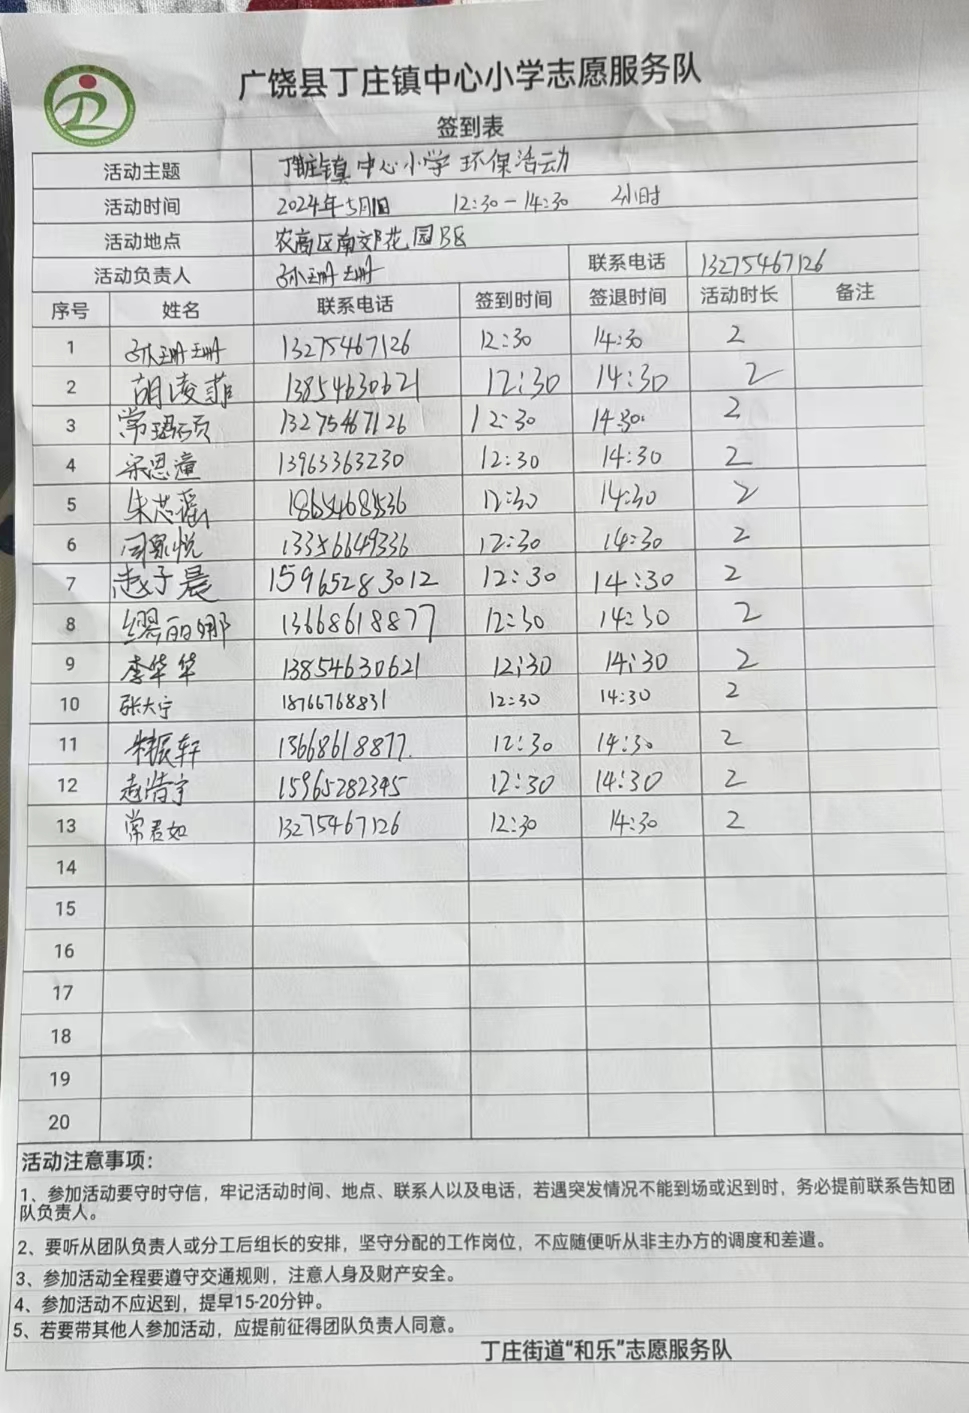 广饶县丁庄镇中心小学志愿服务队
签到表
活动主题 丁庄镇中心小学环保活动
活动时间 2024年5月1日 12:30-14:30 2小时
活动地点 农高区南郊花园B区
活动负责人 孙珊珊 联系电话 13275467126
序号 姓名 联系电话 签到时间 签退时间 活动时长 备注
1 孙珊珊 13275467126 12:30 14:30 2
2 胡凌菲 13854630621 12:30 14:30 2
3 常 13275467126 12:30 14:30. 2
4 宋恩潼 13963363230 12:30 14:30 2
5 朱芯瑶 18654684536 12:30 14:30 2
6 悦 13356649336 12:30 14:30 2
7 赵子晨 15965283012 12:30 14:30 2
8 缪丽娜 13668618877 12:30 14:30 2
9 李华华 13854630621 12:30 14:30 2
10 张大宁 18766768831 12:30 14:30 2
11 朱振轩 13668618877. 12:30 14:30 2
12 赵浩宇 15965282345 12:30 14:30 2
13 常君如 13275467126 12:30 14:30 2
14
15
16
17
18
19
20
活动注意事项：
1、参加活动要守时守信，牢记活动时间、地点、联系人以及电话，若遇突发情况不能到场或迟到时，务必提前联系告知团
队负责人。
2、要听从团队负责人或分工后组长的安排，坚守分配的工作岗位，不应随便听从非主办方的调度和差遣。
3、参加活动全程要遵守交通规则，注意人身及财产安全。
4、参加活动不应迟到，提早15-20分钟。
5、若要带其他人参加活动，应提前征得团队负责人同意。
丁庄街道“和乐”志愿服务队